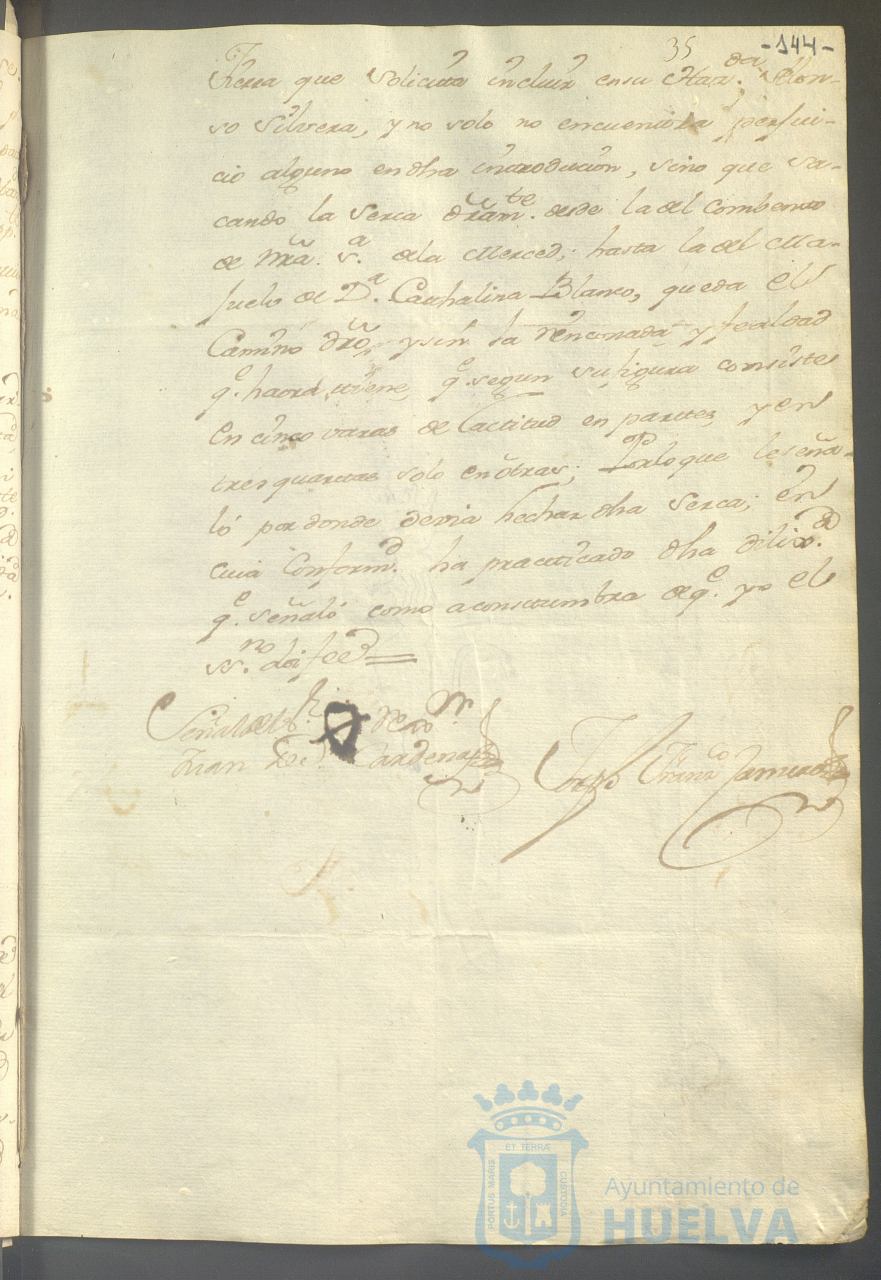 35 -144-
tierra que solicita incluir en su Haz.da Alon-
so Silvera, y no solo no encuentra perjui-
cio alguno en dha introducion, sino que sa-
cando la serca dram.te desde la del Combento
de Nrâ. S.a de la Merced; hasta la del Ma-
juelo de D.a Cathalina Blanco, queda el
Camino dro, y sin la rinconada y fealdad
q.e haora tiene, q.e segun su figura consiste
en cinco varas de Lactitud en partes, y en
tres quartas solo en otras; Porlo que le seña-
ló por donde devia hechar dha serca; en
cuia Conform.d ha practicado dha dilix.a
q.e señaló como aconstumbra de q.e yo el
ss.no doi fee
Señal del
Juan de Cardenas
Fran.co
ET TERRÆ
PORTUS MARIS
CUSTODIA
Ayuntamiento de
HUELVA